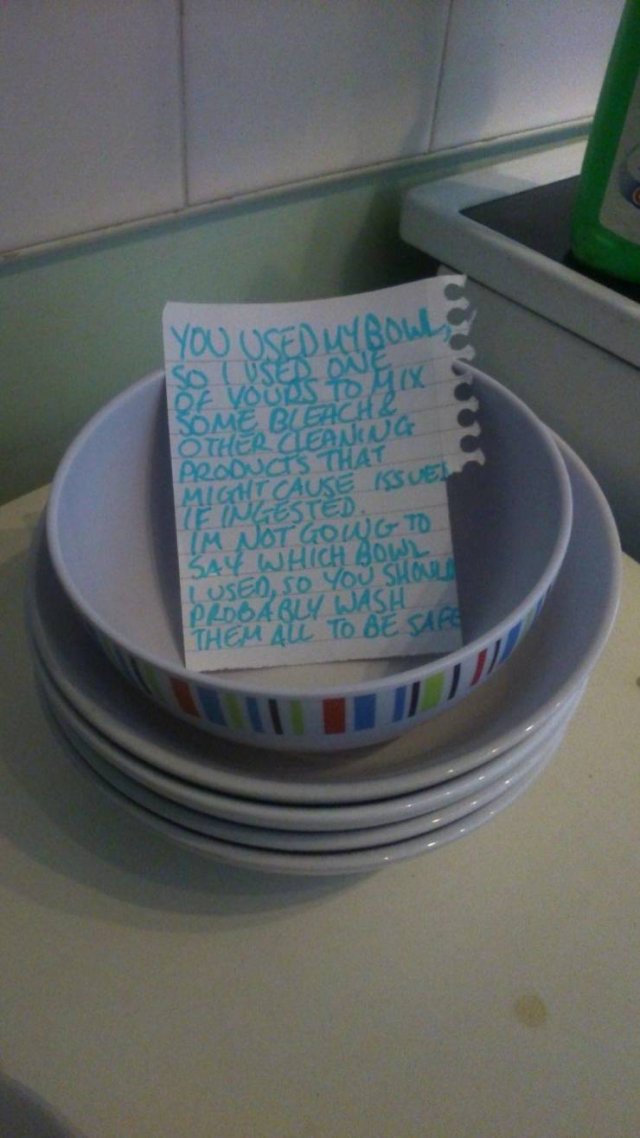 YOU USED MY BOWL,
SO I USED ONE
OF YOURS TO MIX
SOME BLEACH &
OTHER CLEANING
PRODUCTS THAT
MIGHT CAUSE ISSUES
IF INGESTED.
IM NOT GOING TO
SAY WHICH BOWL
I USED, SO YOU SHOULD
PROBABLY WASH
THEM ALL TO BE SAFE